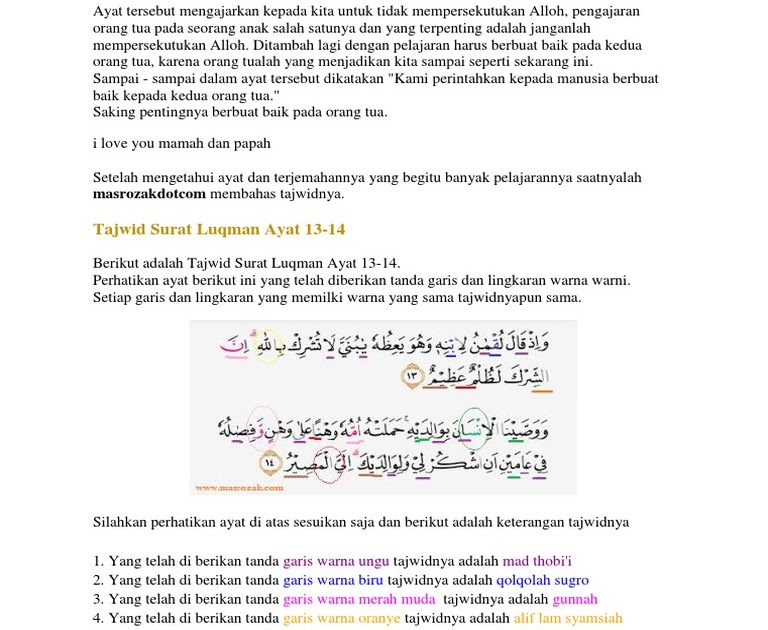 Ayat tersebut mengajarkan kepada kita untuk tidak mempersekutukan Alloh, pengajaran
orang tua pada seorang anak salah satunya dan yang terpenting adalah janganlah
mempersekutukan Alloh. Ditambah lagi dengan pelajaran harus berbuat baik pada kedua
orang tua, karena orang tualah yang menjadikan kita sampai seperti sekarang ini.
Sampai - sampai dalam ayat tersebut dikatakan "Kami perintahkan kepada manusia berbuat
baik kepada kedua orang tua."
Saking pentingnya berbuat baik pada orang tua.
i love you mamah dan papah
Setelah mengetahui ayat dan terjemahannya yang begitu banyak pelajarannya saatnyalah
masrozakdotcom membahas tajwidnya.
Tajwid Surat Luqman Ayat 13-14
Berikut adalah Tajwid Surat Luqman Ayat 13-14.
Perhatikan ayat berikut ini yang telah diberikan tanda garis dan lingkaran warna warni.
Setiap garis dan lingkaran yang memilki warna yang sama tajwidnyapun sama.
وَاِذْ قَالَ لُقْمٰنُ لِابْنِهٖ وَهُوَ يَعِظُهٗ يٰبُنَيَّ لَا تُشْرِكْ بِاللّٰهِ ۗ اِنَّ
الشِّرْكَ لَظُلْمٌ عَظِيْمٌ ١٣
وَوَصَّيْنَا الْاِنْسَانَ بِوَالِدَيْهِۚ حَمَلَتْهُ اُمُّهٗ وَهْنًا عَلٰى وَهْنٍ وَّفِصٰلُهٗ
فِيْ عَامَيْنِ اَنِ اشْكُرْ لِيْ وَلِوَالِدَيْكَۗ اِلَيَّ الْمَصِيْرُ ١٤
www.masrozak.com
Silahkan perhatikan ayat di atas sesuikan saja dan berikut adalah keterangan tajwidnya
1. Yang telah di berikan tanda garis warna ungu tajwidnya adalah mad thobi'i
2. Yang telah di berikan tanda garis warna biru tajwidnya adalah qolqolah sugro
3. Yang telah di berikan tanda garis warna merah muda tajwidnya adalah gunnah
4. Yang telah di berikan tanda garis warna oranye tajwidnya adalah alif lam syamsiah